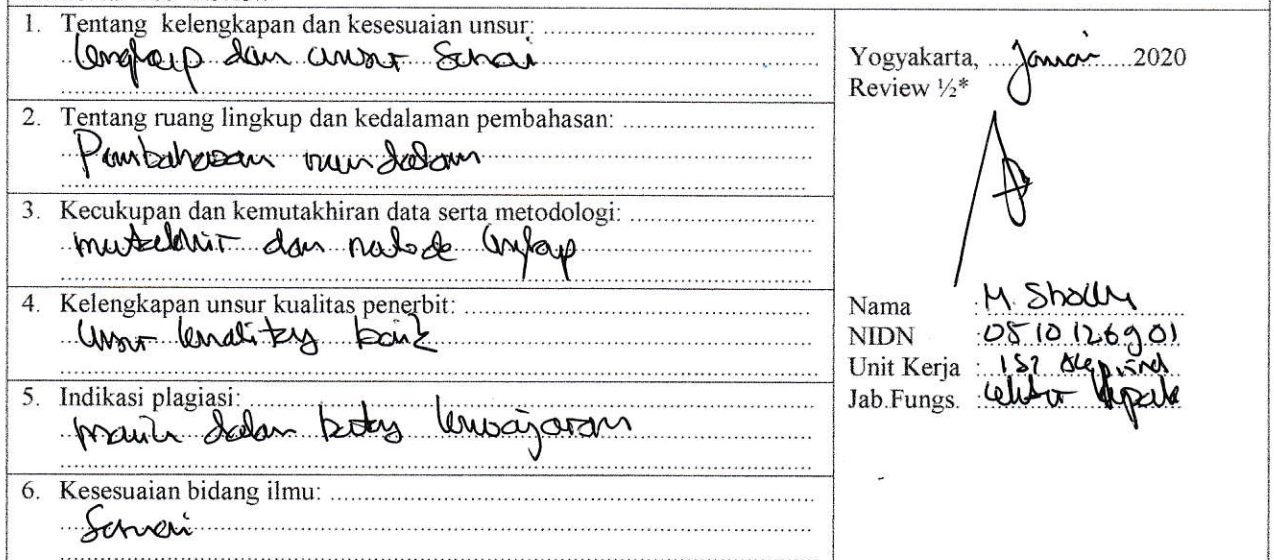 1. Tentang kelengkapan dan kesesuaian unsur:
lengkap dan unsur sesuai
2. Tentang ruang lingkup dan kedalaman pembahasan:
Pembahasan mendalam
3. Kecukupan dan kemutakhiran data serta metodologi:
mutakhir dan metode lengkap
4. Kelengkapan unsur kualitas penerbit:
Unsur kualitas baik
5. Indikasi plagiasi:
masih dalam batas kewajaran
6. Kesesuaian bidang ilmu:
Sesuai
Yogyakarta, Januari 2020
Review ½*
Nama : M. Sholly
NIDN : 0510126901
Unit Kerja :
Jab.Fungs. : Lektor Kepala